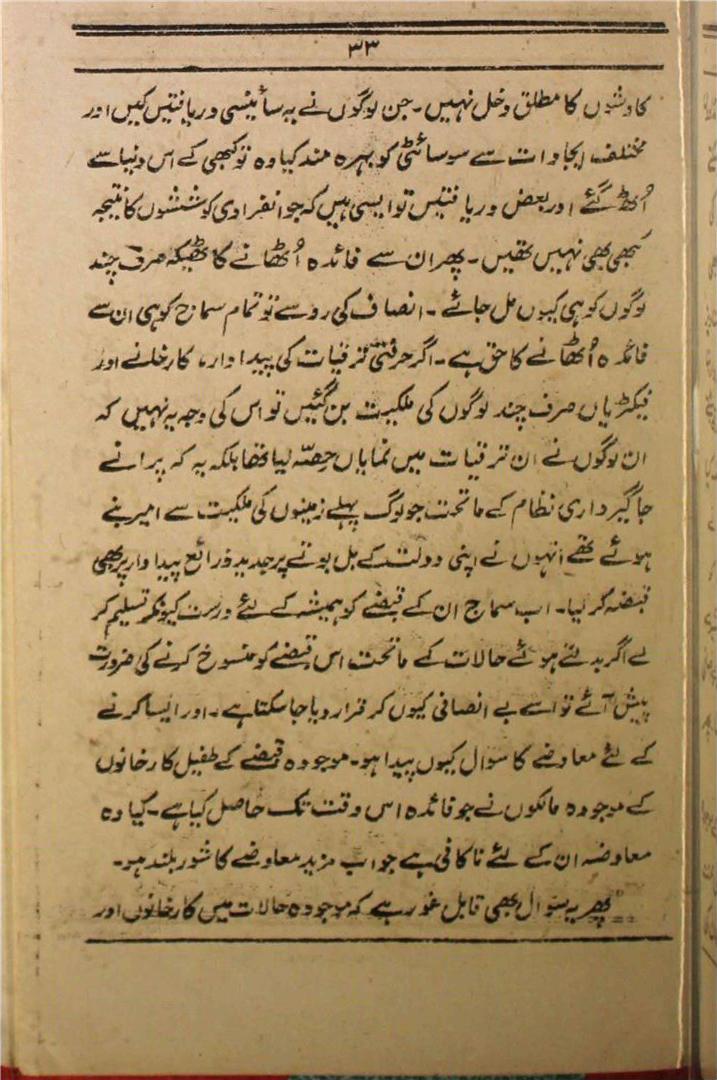 ۳۳
کاوشوں کا مطلق دخل نہیں۔ جن لوگوں نے یہ سائینسی دریافتیں کیں اور
مختلف ایجادات سے سوسائٹی کو بہرہ مند کیا وہ تو کبھی کے اس دنیا سے
اُٹھ گئے اور بعض دریافتیں تو ایسی ہیں کہ جو انفرادی کوششوں کا نتیجہ
کبھی بھی نہیں تھیں۔ پھر ان سے فائدہ اُٹھانے کا ٹھیکہ صرف چند
لوگوں کو ہی کیوں مل جائے۔ انصاف کی رو سے تو تمام سماج کو ہی ان سے
فائدہ اُٹھانے کا حق ہے۔ اگر حرفتی ترقیات کی پیداوار، کارخانے اور
فیکٹریاں صرف چند لوگوں کی ملکیت بن گئیں تو اس کی وجہ یہ نہیں کہ
ان لوگوں نے ان ترقیات میں نمایاں حصّہ لیا تھا بلکہ یہ کہ پرانے
جاگیرداری نظام کے ماتحت جو لوگ پہلے زمینوں کی ملکیت سے امیر بنے
ہوئے تھے انہوں نے اپنی دولت کے بل بوتے پر جدید ذرائع پیداوار پر بھی
قبضہ کر لیا۔ اب سماج ان کے قبضے کو ہمیشہ کے لئے درست کیونکر تسلیم کر
لے اگر بدلتے ہوئے حالات کے ماتحت اس قبضے کو منسوخ کرنے کی ضرورت
پیش آئے تو اسے بے انصافی کیوں کر قرار دیا جا سکتا ہے۔ اور ایسا کرنے
کے لئے معاوضے کا سوال کیوں پیدا ہو۔ موجودہ قبضے کے طفیل کارخانوں
کے موجودہ مالکوں نے جو فائدہ اس وقت تک حاصل کیا ہے۔ کیا وہ
معاوضہ ان کے لئے ناکافی ہے جو اب مزید معاوضے کا شور بلند ہو۔
پھر یہ سوال بھی قابل غور ہے کہ موجودہ حالات میں کارخانوں اور